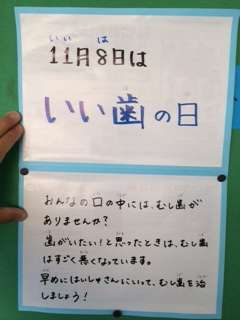 いい は
11月8日は
いい歯の日
おんなの口の中には、むし歯が
ありませんか？
歯がいたい！と思ったときは、むし歯
はすごく悪くなっています。
早めにはいしゃさんにいって、むし歯を治
しましょう！